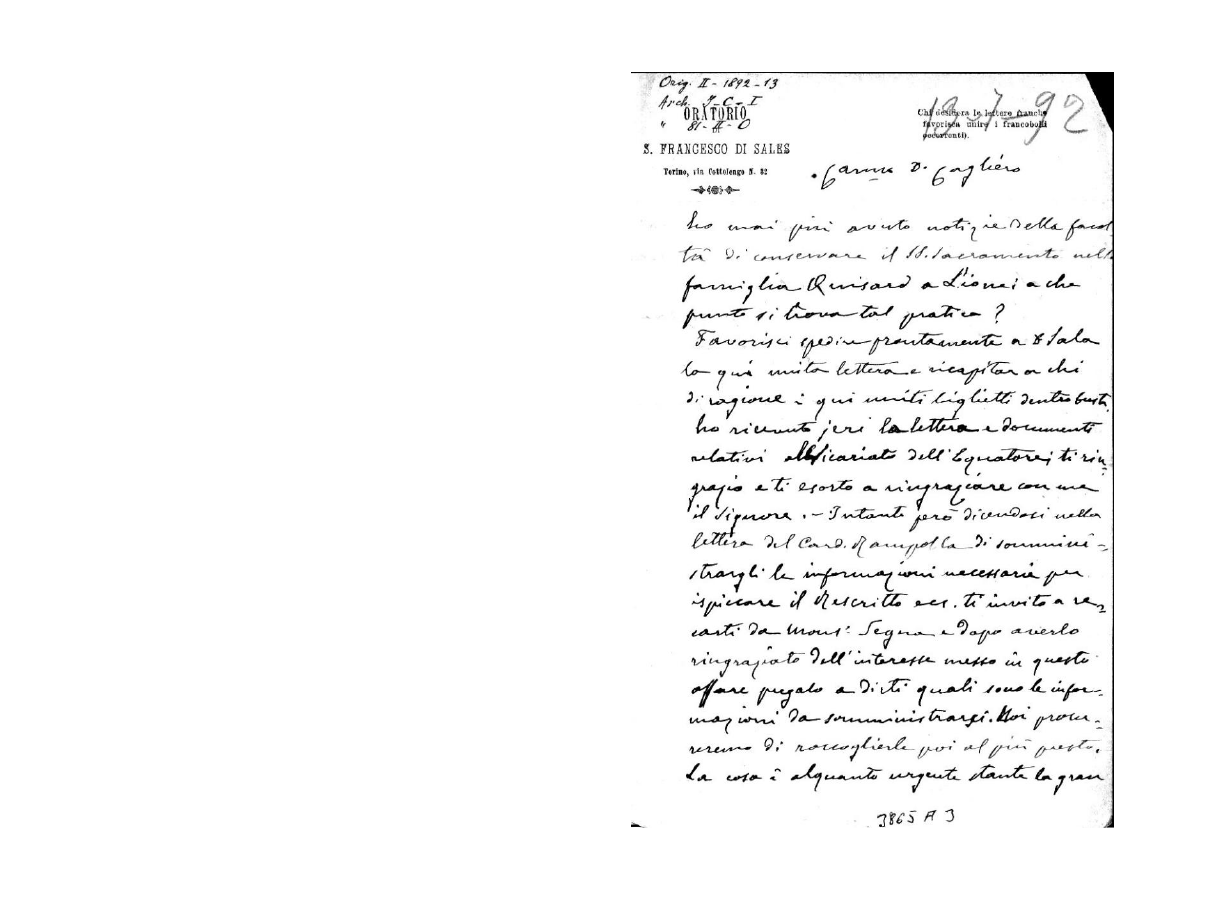 Orig. II - 1892 - 13
Arch. J-C-I
" 81-II-O
13-7-92
ORATORIO
S. FRANCESCO DI SALES
Torino, via Cottolengo N. 32
Chi desidera le lettere franche
favorisca unire i francobolli
occorrenti).
D. Cagliero
ho mai più avuto notizie della facol
tà di conservare il SS. Sacramento nella
famiglia Quisard a Lione; a che
punto si trova tal pratica?
Favorisci spedire prontamente a D Sala
la qui unita lettera e ricapitar a chi
di ragione i qui uniti biglietti dentro busta.
ho ricevuto jeri la lettera e documenti
relativi al Vicariato dell'Equatore; ti rin-
grazio e ti esorto a ringraziare con me
il Signore. - Intanto però dicendosi nella
lettera del Card. Rampolla di sommini-
strargli le informazioni necessarie per
ispiccare il Rescritto ecc. ti invito a re-
carti da Monsr Segna e dopo averlo
ringraziato dell'interesse messo in questo
affare pregalo a dirti quali sono le infor-
mazioni da somministrarsi. Noi procu-
reremo di raccoglierle poi al più presto.
La cosa è alquanto urgente stante la gran
3865 A 3